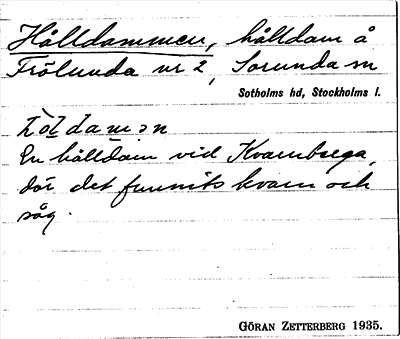 Hålldammen, hålldam å
Frölunda nr 2, Sorunda sn
Sotholms hd, Stockholms l.
hòldamən
En hålldam vid Kvarnbrega,
där det funnits kvarn och
såg.
GÖRAN ZETTERBERG 1935.